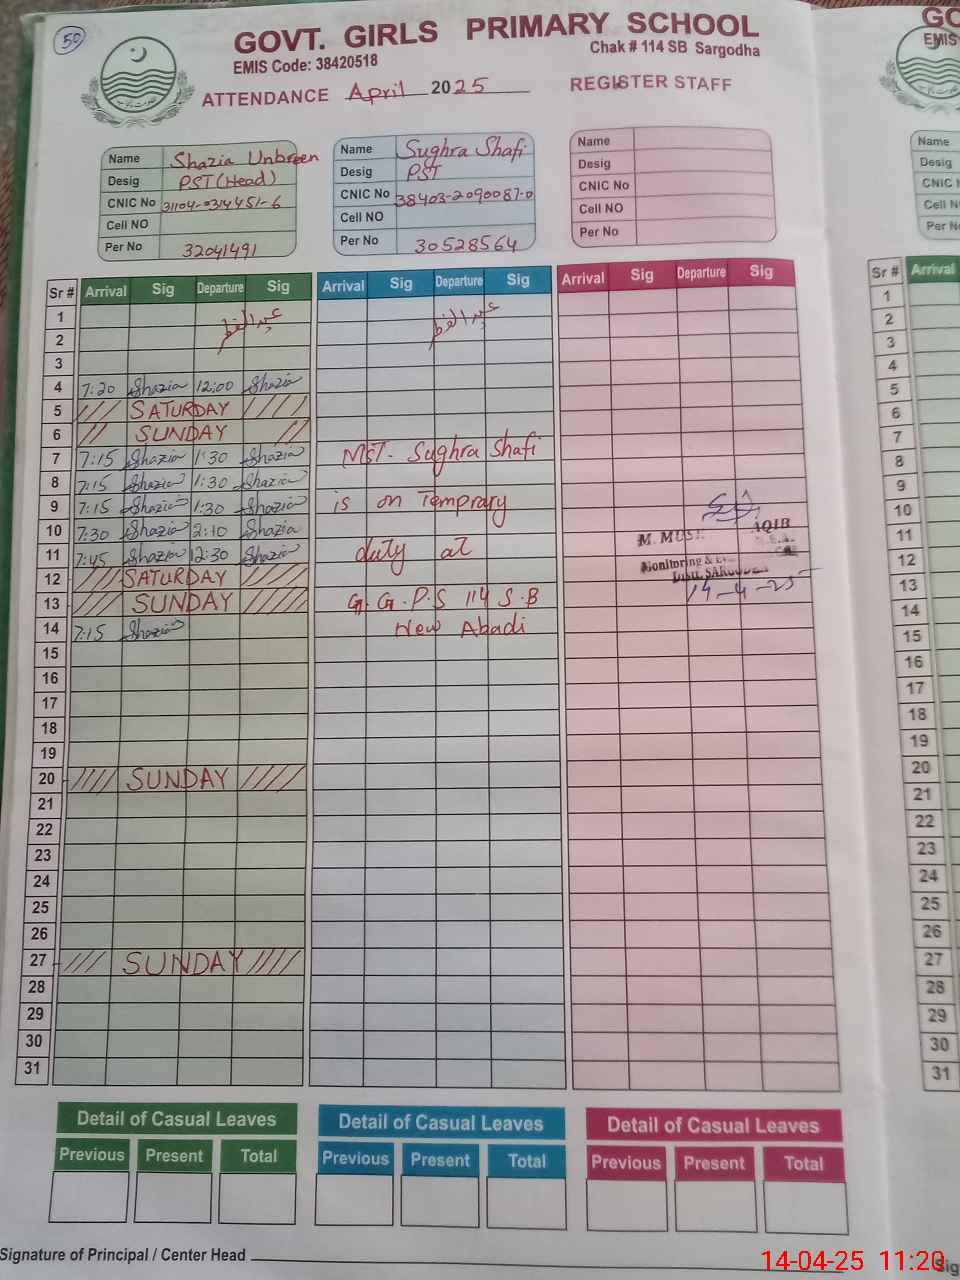 50
GOVT. GIRLS PRIMARY SCHOOL
EMIS Code: 38420518
Chak # 114 SB Sargodha
ATTENDANCE April 2025
REGISTER STAFF
Name Shazia Unbreen
Desig PST (Head)
CNIC No 31104-0314451-6
Cell NO
Per No 32041491
Name Sughra Shafi
Desig PST
CNIC No 38403-2090087-0
Cell NO
Per No 30528564
Name
Desig
CNIC No
Cell NO
Per No
Sr # Arrival Sig Departure Sig Arrival Sig Departure Sig Arrival Sig Departure Sig
1 عید الفطر عید الفطر
2
3
4 7:20 Shazia 12:00 Shazia
5 SATURDAY
6 SUNDAY
7 7:15 Shazia 1:30 Shazia MST. Sughra Shafi
8 7:15 Shazia 1:30 Shazia
9 7:15 Shazia 1:30 Shazia is on Temprary
10 7:30 Shazia 2:10 Shazia
11 7:45 Shazia 12:30 Shazia duty at
12 SATURDAY
13 SUNDAY G.G.P.S 114 S.B
14 7:15 Shazia New Abadi
15
16
17
18
19
20 SUNDAY
21
22
23
24
25
26
27 SUNDAY
28
29
30
31
AQIB
Monitoring &
14-4-25
Detail of Casual Leaves
Previous Present Total
Detail of Casual Leaves
Previous Present Total
Detail of Casual Leaves
Previous Present Total
Signature of Principal / Center Head
GO
EMIS
Name
Desig
CNIC
Cell N
Per N
Sr # Arrival
1
2
3
4
5
6
7
8
9
10
11
12
13
14
15
16
17
18
19
20
21
22
23
24
25
26
27
28
29
30
31
Sig
14-04-25 11:20